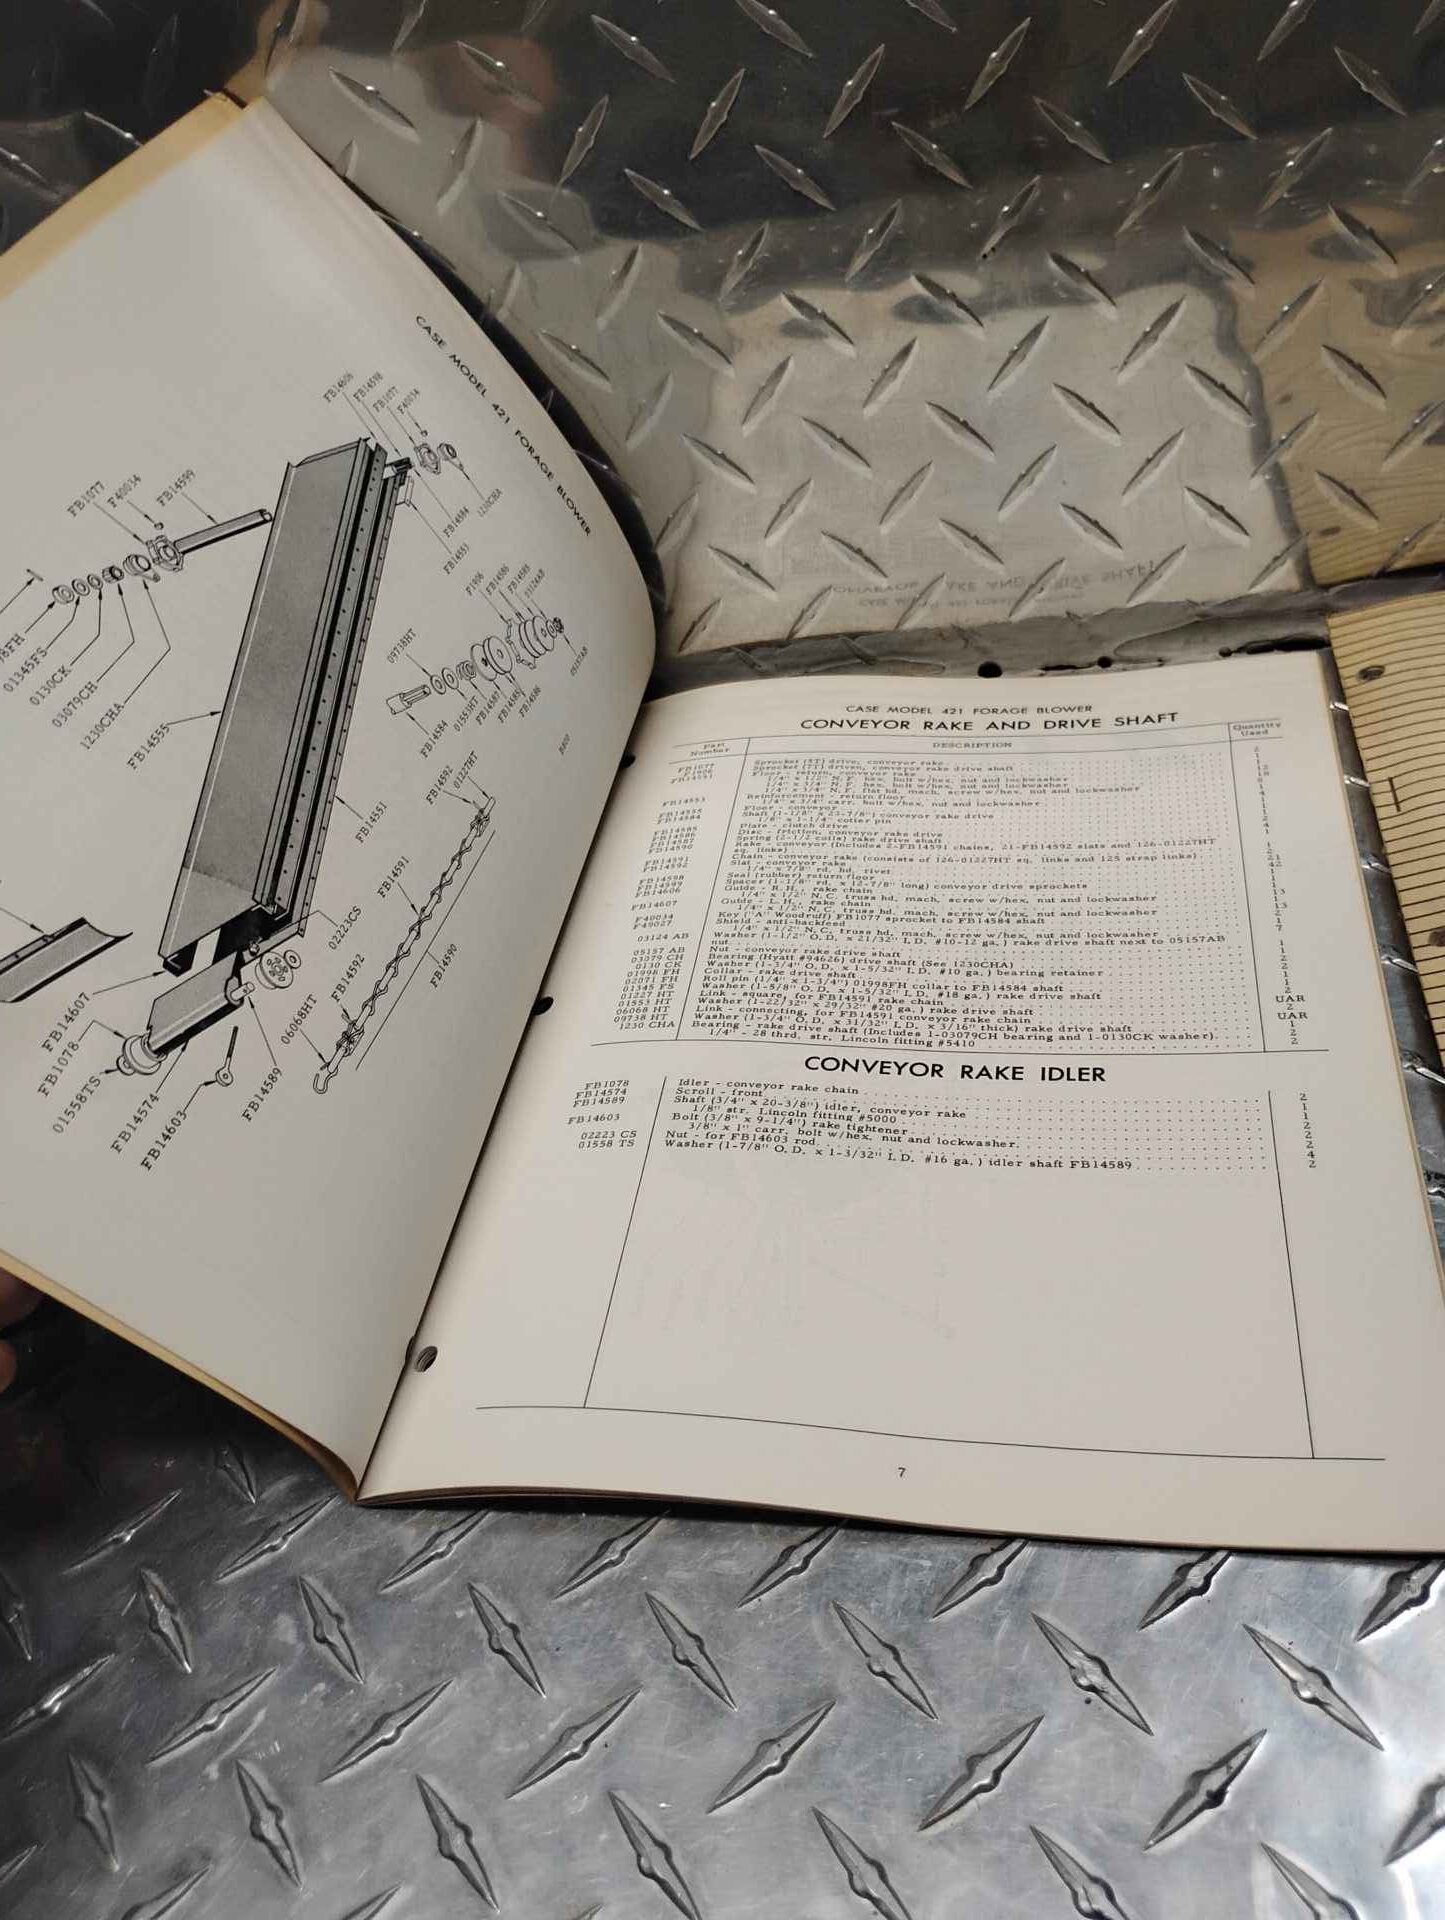 CASE MODEL 421 FORAGE BLOWER
FB14606
FB14598
FB1077
F40034
1230CHA
FB14584
FB14553
FB1077
F40034
FB14599
01345FS
0130CK
03079CH
1230CHA
FB14555
F1906
FB14586
FB14585
03124AB
05157AB
09738HT
FB14584
01553HT
FB14587
FB14585
FB14586
FB14551
FB14592
01227HT
FB14591
FB14590
02223CS
FB14592
06068HT
FB14589
FB14607
FB1078
01558TS
FB14574
FB14603
CASE MODEL 421 FORAGE BLOWER
CONVEYOR RAKE AND DRIVE SHAFT
Part Number DESCRIPTION Quantity Used
FB1077 Sprocket (5T) drive, conveyor rake
F1906 Sprocket (7T) driven, conveyor rake drive shaft
FB14551 Floor - return, conveyor rake
1/4" x 1/2" N.F. hex. bolt w/hex. nut and lockwasher
1/4" x 3/4" N.F. hex. bolt w/hex. nut and lockwasher
1/4" x 3/4" N.F. flat hd. mach. screw w/hex. nut and lockwasher
FB14553 Reinforcement - return floor
1/4" x 3/4" carr. bolt w/hex. nut and lockwasher
FB14555 Floor - conveyor
FB14584 Shaft (1-1/8" x 23-7/8") conveyor rake drive
1/8" x 1-1/4" cotter pin
FB14585 Plate - clutch drive
FB14586 Disc - friction, conveyor rake drive
FB14587 Spring (2-1/2 coils) rake drive shaft
FB14590 Rake - conveyor (Includes 2-FB14591 chains, 21-FB14592 slats and 126-01227HT
sq. links)
FB14591 Chain - conveyor rake (consists of 126-01227HT sq. links and 125 strap links)
FB14592 Slat - conveyor rake
1/4" x 7/8" rd. rivet
FB14598 Seal (rubber) return floor
FB14599 Spacer (1-1/8" rd. x 12-7/8" long) conveyor drive sprockets
FB14606 Guide - R.H., rake chain
1/4" x 1/2" N.C. truss hd. mach. screw w/hex. nut and lockwasher
FB14607 Guide - L.H., rake chain
1/4" x 1/2" N.C. truss hd. mach. screw w/hex. nut and lockwasher
F40034 Key ("A" Woodruff) FB1077 sprocket to FB14584 shaft
F49027 Shield - anti-backfeed
1/4" x 1/2" N.C. truss hd. mach. screw w/hex. nut and lockwasher
03124 AB Washer (1-1/2" O.D. x 21/32" I.D. #10-12 ga.) rake drive shaft next to 05157AB
nut
05157 AB Nut - conveyor rake drive shaft
03079 CH Bearing (Hyatt #94626) drive shaft (See 1230CHA)
0130 CK Washer (1-3/4" O.D. x 1-5/32" I.D. #10 ga.) bearing retainer
01998 FH Collar - rake drive shaft
02071 FH Roll pin (1/4" x 1-3/4") 01998FH collar to FB14584 shaft
01345 FS Washer (1-5/8" O.D. x 1-5/32" I.D. #18 ga.) rake drive shaft
01227 HT Link - square, for FB14591 rake chain UAR
01553 HT Washer (1-22/32" x 29/32" #20 ga.) rake drive shaft 2
06068 HT Link - connecting, for FB14591 conveyor rake chain UAR
09738 HT Washer (1-3/4" O.D. x 31/32" I.D. x 3/16" thick) rake drive shaft 1
1230 CHA Bearing - rake drive shaft (Includes 1-03079CH bearing and 1-0130CK washer) 2
1/4" - 28 thrd. str. Lincoln fitting #5410 2
CONVEYOR RAKE IDLER
FB1078 Idler - conveyor rake chain 2
FB14574 Scroll - front 1
FB14589 Shaft (3/4" x 20-3/8") idler, conveyor rake 1
1/8" str. Lincoln fitting #5000 2
FB14603 Bolt (3/8" x 9-1/4") rake tightener 2
3/8" x 1" carr. bolt w/hex. nut and lockwasher. 2
02223 CS Nut - for FB14603 rod 4
01558 TS Washer (1-7/8" O.D. x 1-3/32" I.D. #16 ga.) idler shaft FB14589 2
7